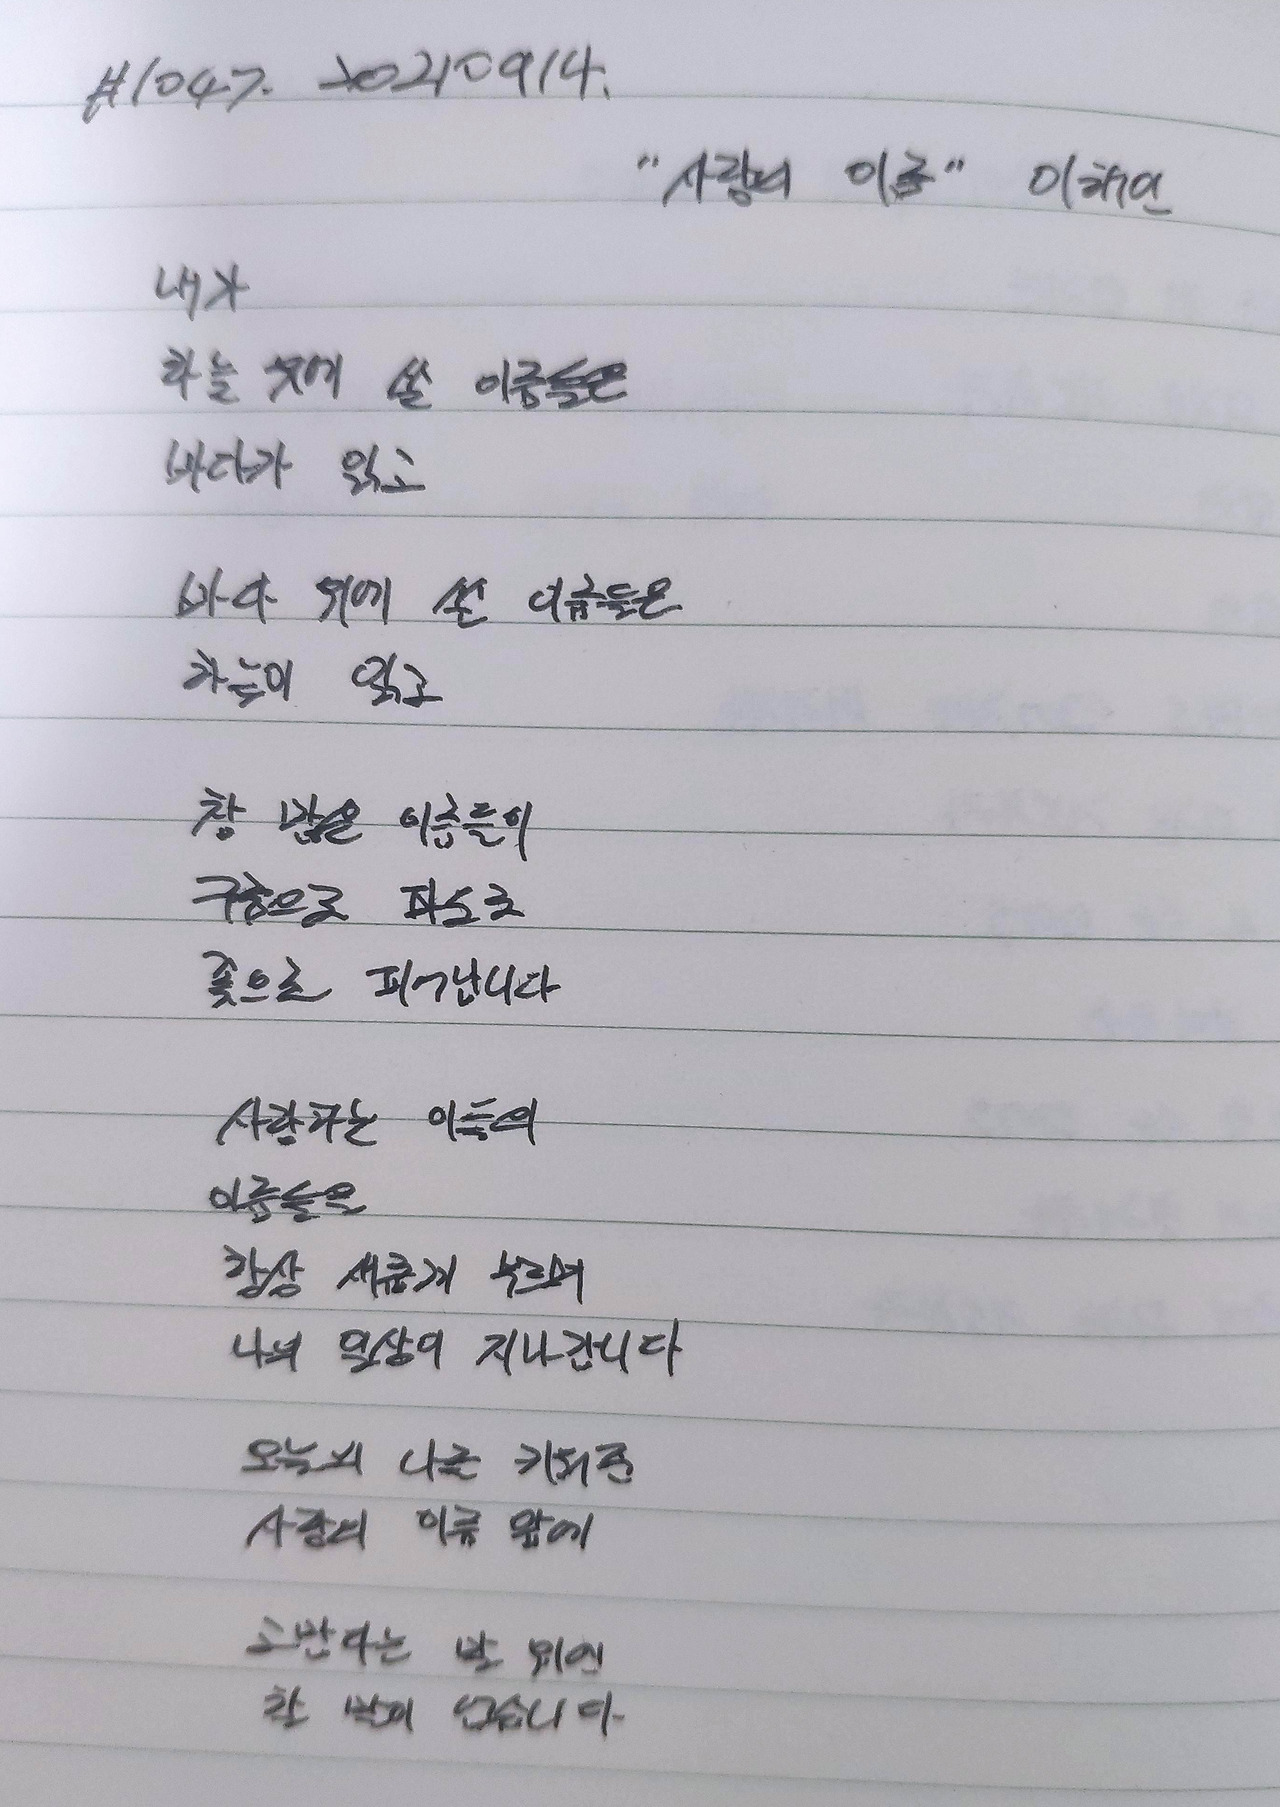 #1047. 20210914.
"사랑의 이름" 이해인
내가
하늘 위에 쓴 이름들은
바다가 읽고
바다 위에 쓴 이름들은
하늘이 읽고
참 많은 이름들이
구름으로 파도로
꽃으로 피어납니다
사랑하는 이들의
이름들을
항상 새롭게 부르며
나의 일상이 지나갑니다
오늘의 나를 키워준
사랑의 이름 앞에
고맙다는 말 위에
할 말이 없습니다